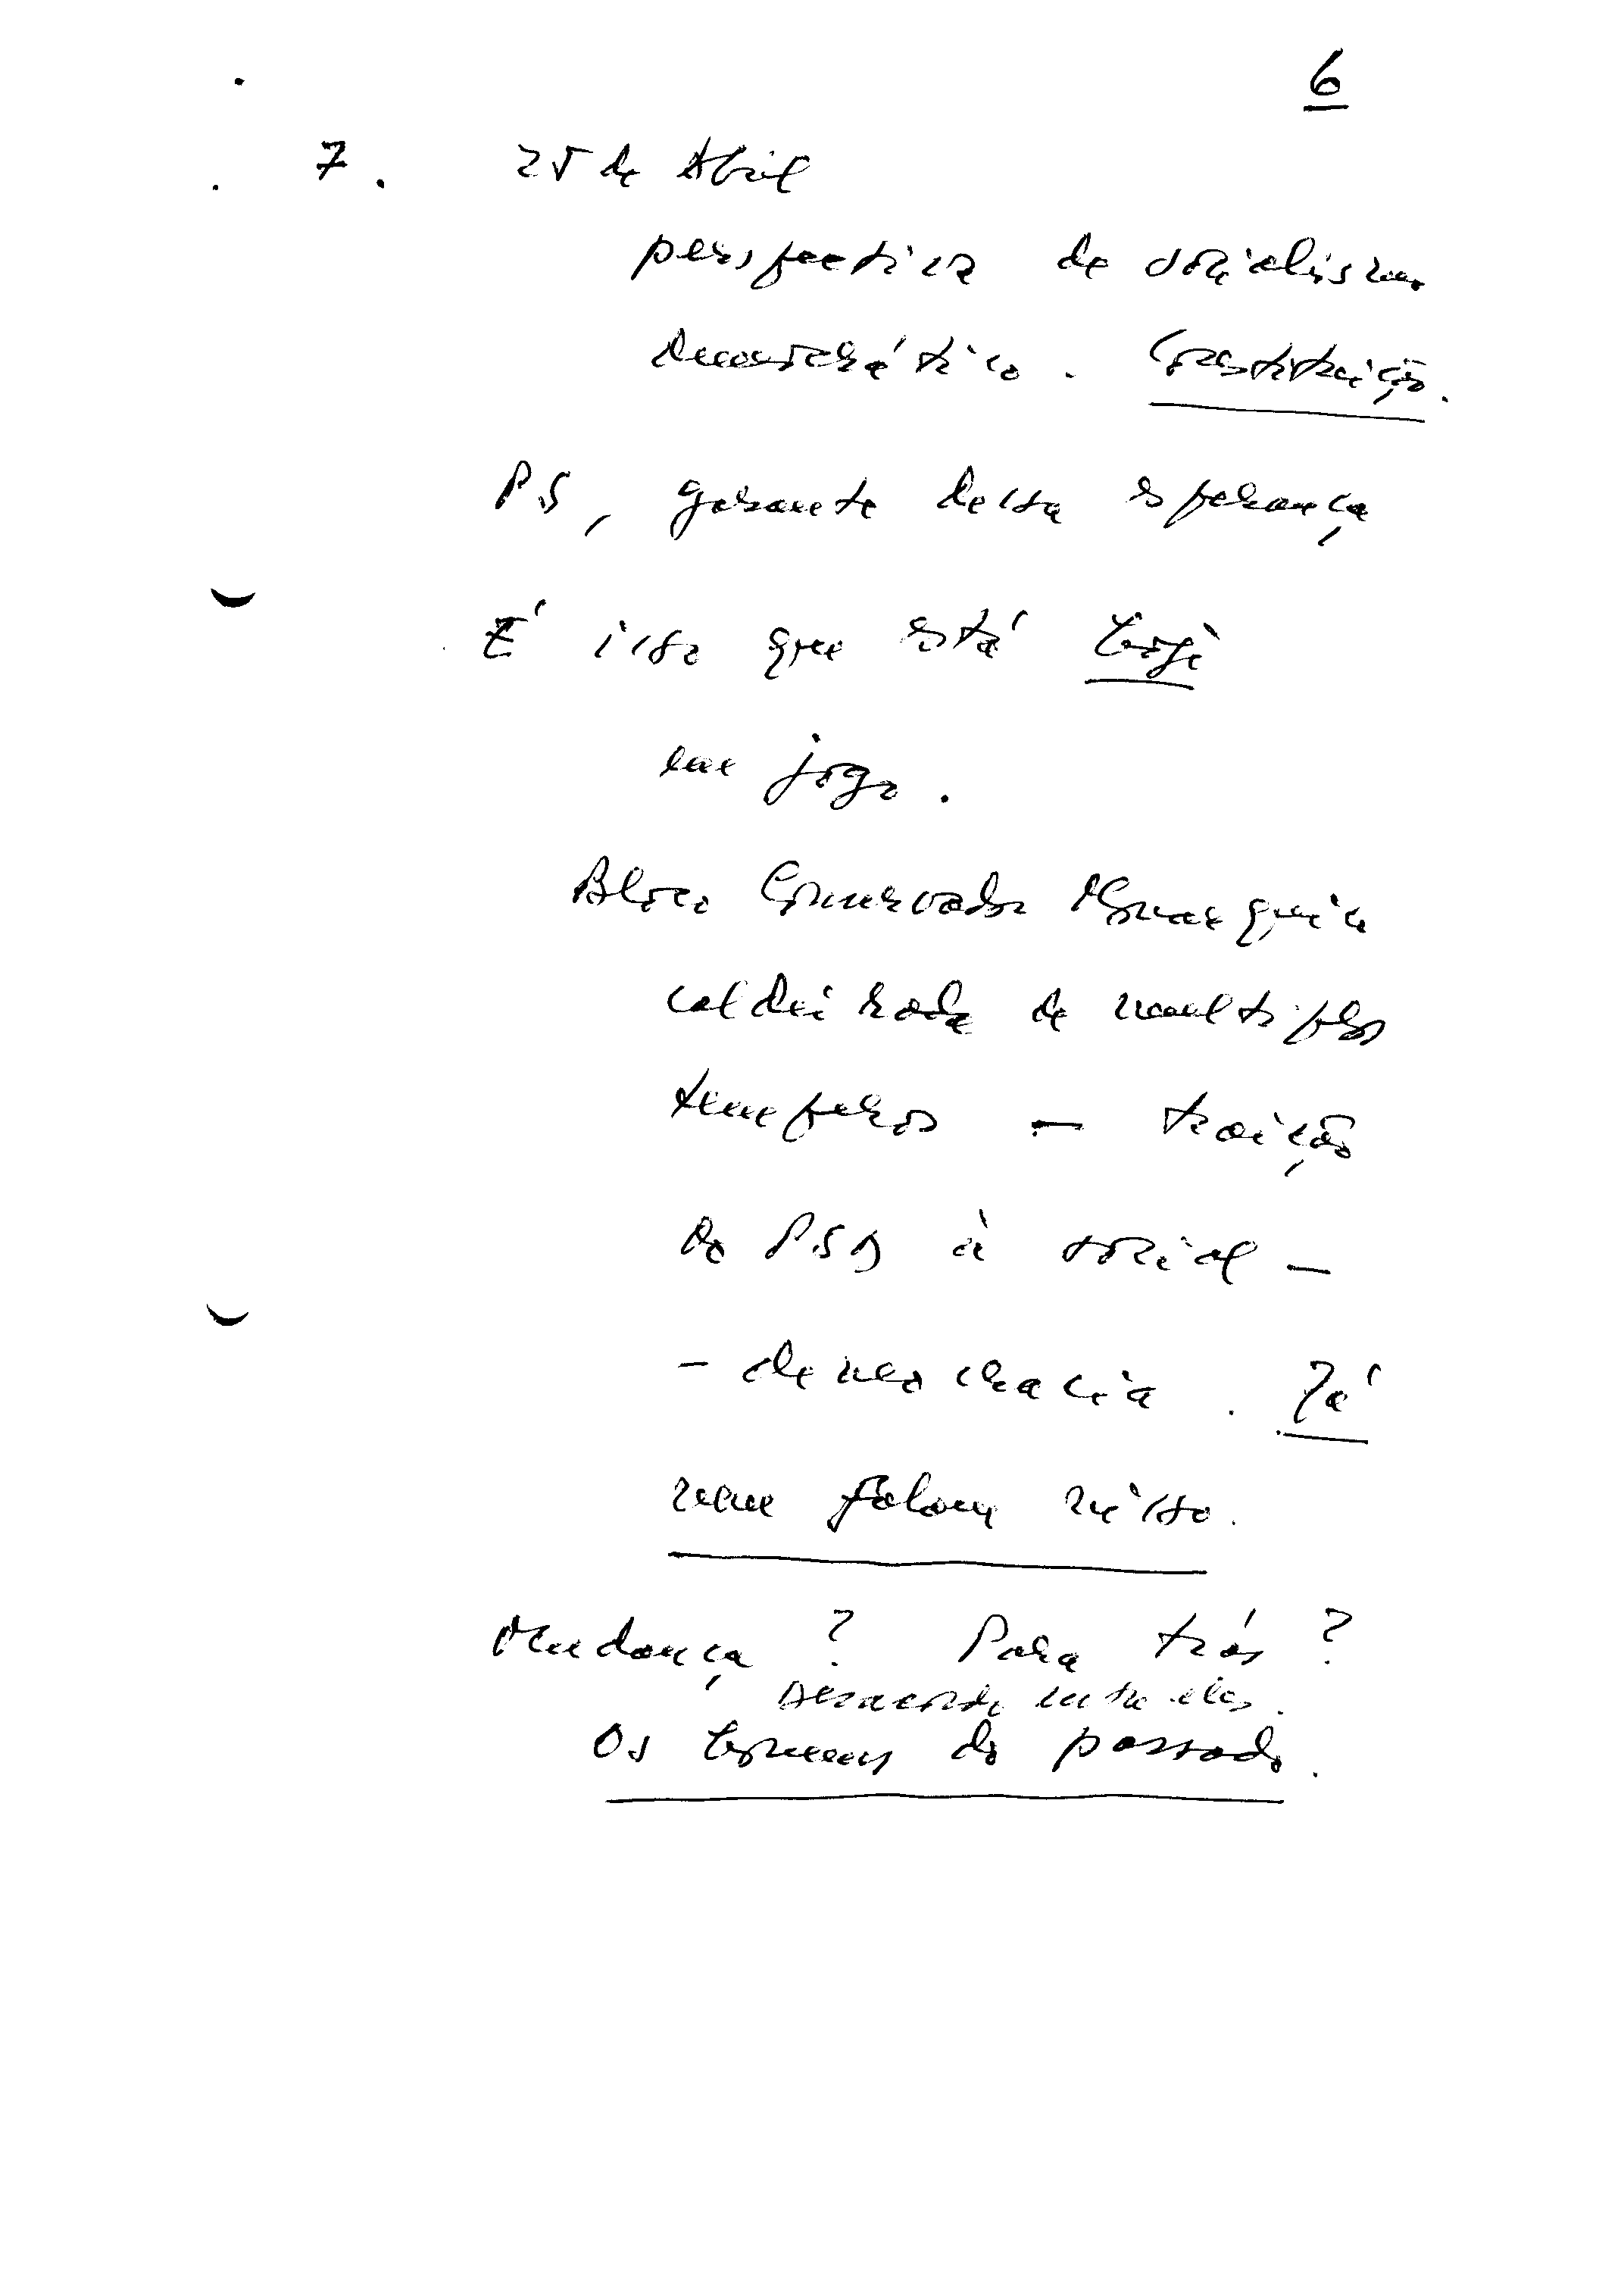 6
7. 25 de Abril
perspectiva de socialismo
democrático. Constituição.
PS, garante dessa esperança
É isso que está hoje
em jogo.
Bloco Conservador Monarquico
caldeirada de multiplos
temperos — traição
do PSD à social-
-democracia. Já
nem falam nisso.
Mudança? Para trás?
Desacordo entre eles.
Os homens do passado.